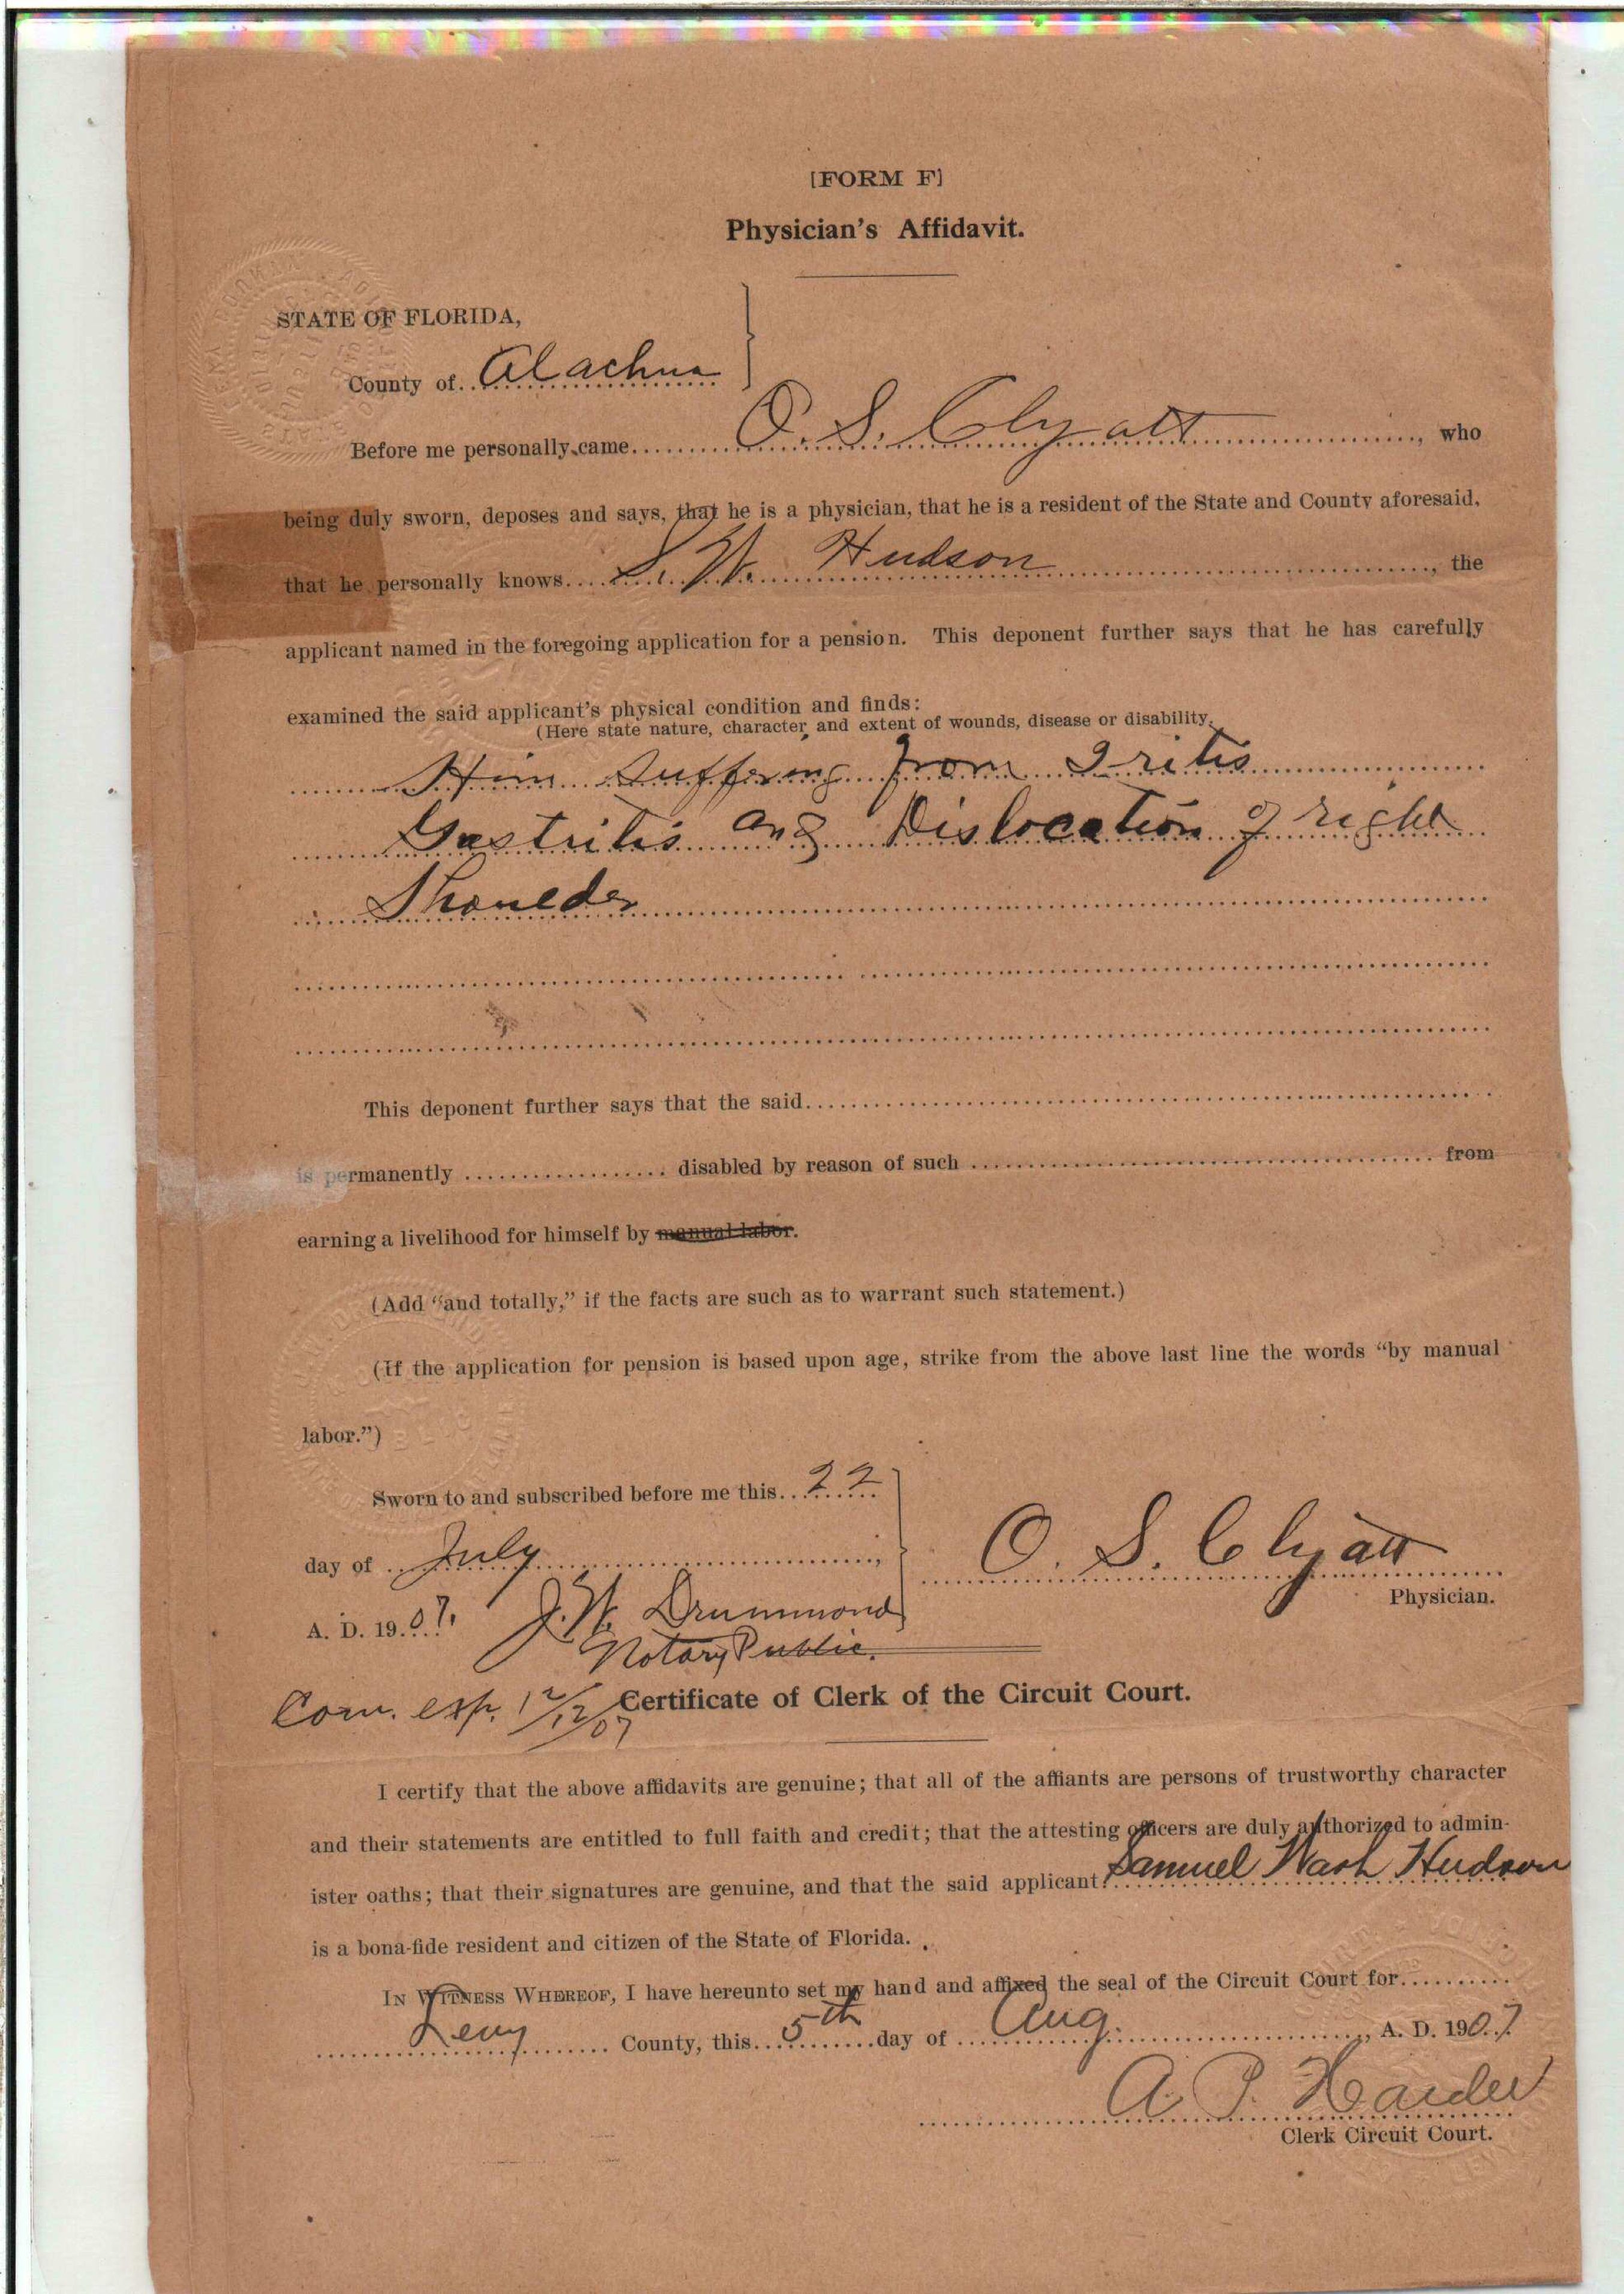 [FORM F]
Physician's Affidavit.
STATE OF FLORIDA,
County of Alachua
Before me personally came O. S. Clyatt, who
being duly sworn, deposes and says, that he is a physician, that he is a resident of the State and County aforesaid,
that he personally knows S. W. Hudson, the
applicant named in the foregoing application for a pension. This deponent further says that he has carefully
examined the said applicant's physical condition and finds:
(Here state nature, character and extent of wounds, disease or disability.
Him suffering from Iritis
Gastritis and Dislocation of right
Shoulder
This deponent further says that the said
is permanently disabled by reason of such from
earning a livelihood for himself by manual labor.
(Add "and totally," if the facts are such as to warrant such statement.)
(If the application for pension is based upon age, strike from the above last line the words "by manual
labor.")
Sworn to and subscribed before me this 22
day of July,
O. S. Clyatt
Physician.
A. D. 1907. J. W. Drummond
Notary Public.
Com. exp. 12/12/07
Certificate of Clerk of the Circuit Court.
I certify that the above affidavits are genuine; that all of the affiants are persons of trustworthy character
and their statements are entitled to full faith and credit; that the attesting officers are duly authorized to admin-
ister oaths; that their signatures are genuine, and that the said applicant Samuel Wash Hudson
is a bona-fide resident and citizen of the State of Florida.
IN WITNESS WHEREOF, I have hereunto set my hand and affixed the seal of the Circuit Court for
Levy County, this 5th day of Aug., A. D. 1907.
A. P. Hardee
Clerk Circuit Court.